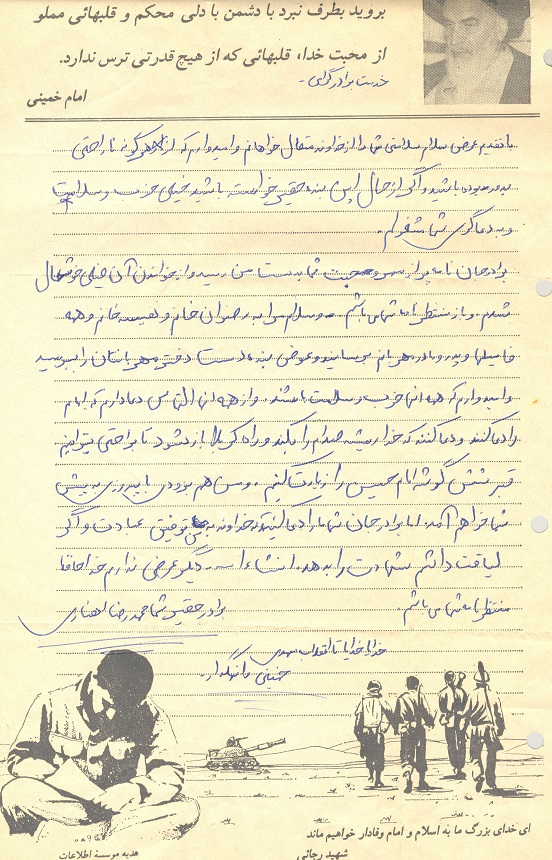 بروید بطرف نبرد با دشمن با دلی محکم و قلبهائی مملو
از محبت خدا، قلبهائی که از هیچ قدرتی ترس ندارد.
امام خمینی
خدمت برادر گرامی -
با تقدیم عرض سلام سلامتی شما را از خداوند متعال خواهانم و امیدوارم که از هر گونه ناراحتی
بدور بوده باشید و اگر از حال این بنده حقیر خواسته باشید خیلی خوب و سلامت
و به دعاگوی شما مشغولم.
برادر جان نامه پر از محبت شما بدست من رسید و از خواندن آن خیلی خوشحال
شدم و باز منتظر نامه شما می باشم و سلام مرا به رضوان خانم و نفیسه خانم و همه
فامیلها و پدر و مادر مهربانم برسانید و عوض بنده دست دختر باستان را ببوسید
و امیدوارم که همه آنها خوب و سلامت باشند. و از همه آنها التماس دعا دارم که امام
را دعا کنند و دعا کنند که خدا ریشه صدام را بکند و راه کربلا باز شود تا براحتی بتوانیم
قبر شش گوشه امام حسین را زیارت کنیم. و من هم بزودی با پیروزی به پیش
شما خواهم آمد. اما برادر جان شما دعا کنید که خداوند به من توفیق عبادت و اگر
لیاقت داشتم شهادت را بدهد. انشاءاله دیگر عرضی ندارم خداحافظ
منتظر نامه شما می باشم.
برادر حقیر شما محمد رضا
خدایا خدایا تا انقلاب مهدی
خمینی را نگهدار.
ای خدای بزرگ ما به اسلام و امام وفادار خواهیم ماند
شهید رجائی
هدیه موسسهٔ اطلاعات